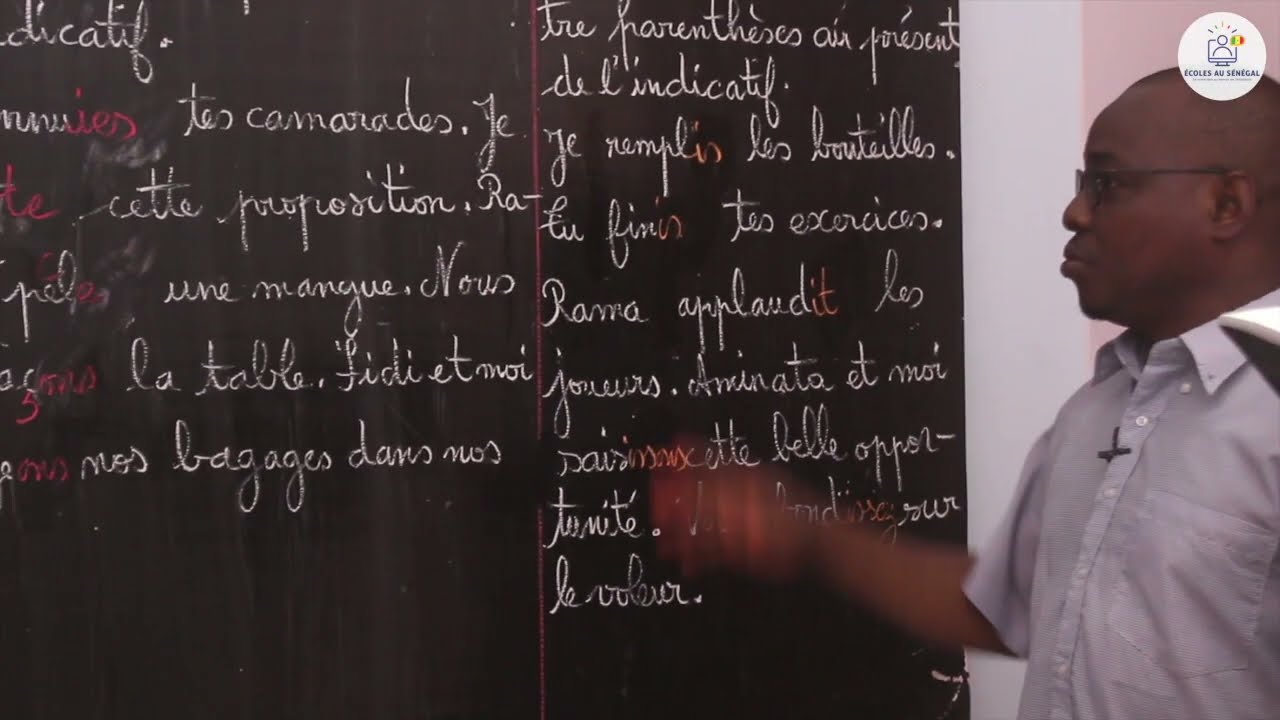 dicatif.
nnuies tes camarades. Je
te cette proposition. Ra-
pèle une mangue. Nous
açons la table. Fidi et moi
5
geons nos bagages dans nos
tre parenthèses au présent
de l'indicatif.
Je remplis les bouteilles.
Tu finis tes exercices.
Rama applaudit les
joueurs. Aminata et moi
saisissons cette belle oppor-
tunité. bondissez sur
le voleur.
ÉCOLES AU SÉNÉGAL